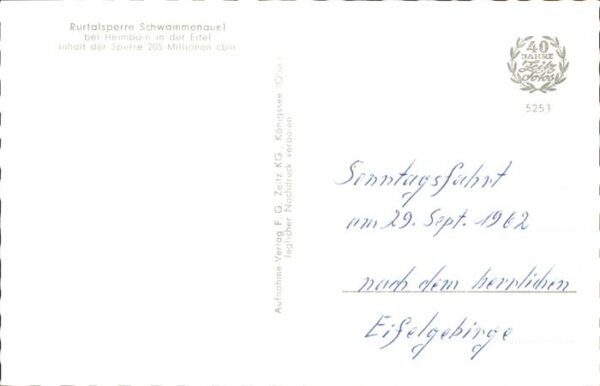 Rurtalsperre Schwammenauel
bei Heimbach in der Eifel
Inhalt der Sperre 205 Millionen cbm
40
JAHRE
Zeitz
Fotos
5253
Aufnahme Verlag F. G. Zeitz KG., Königssee (Obb.)
Jeglicher Nachdruck verboten
Sonntagsfahrt
am 29. Sept. 1962
nach dem herrlichen
Eifelgebirge